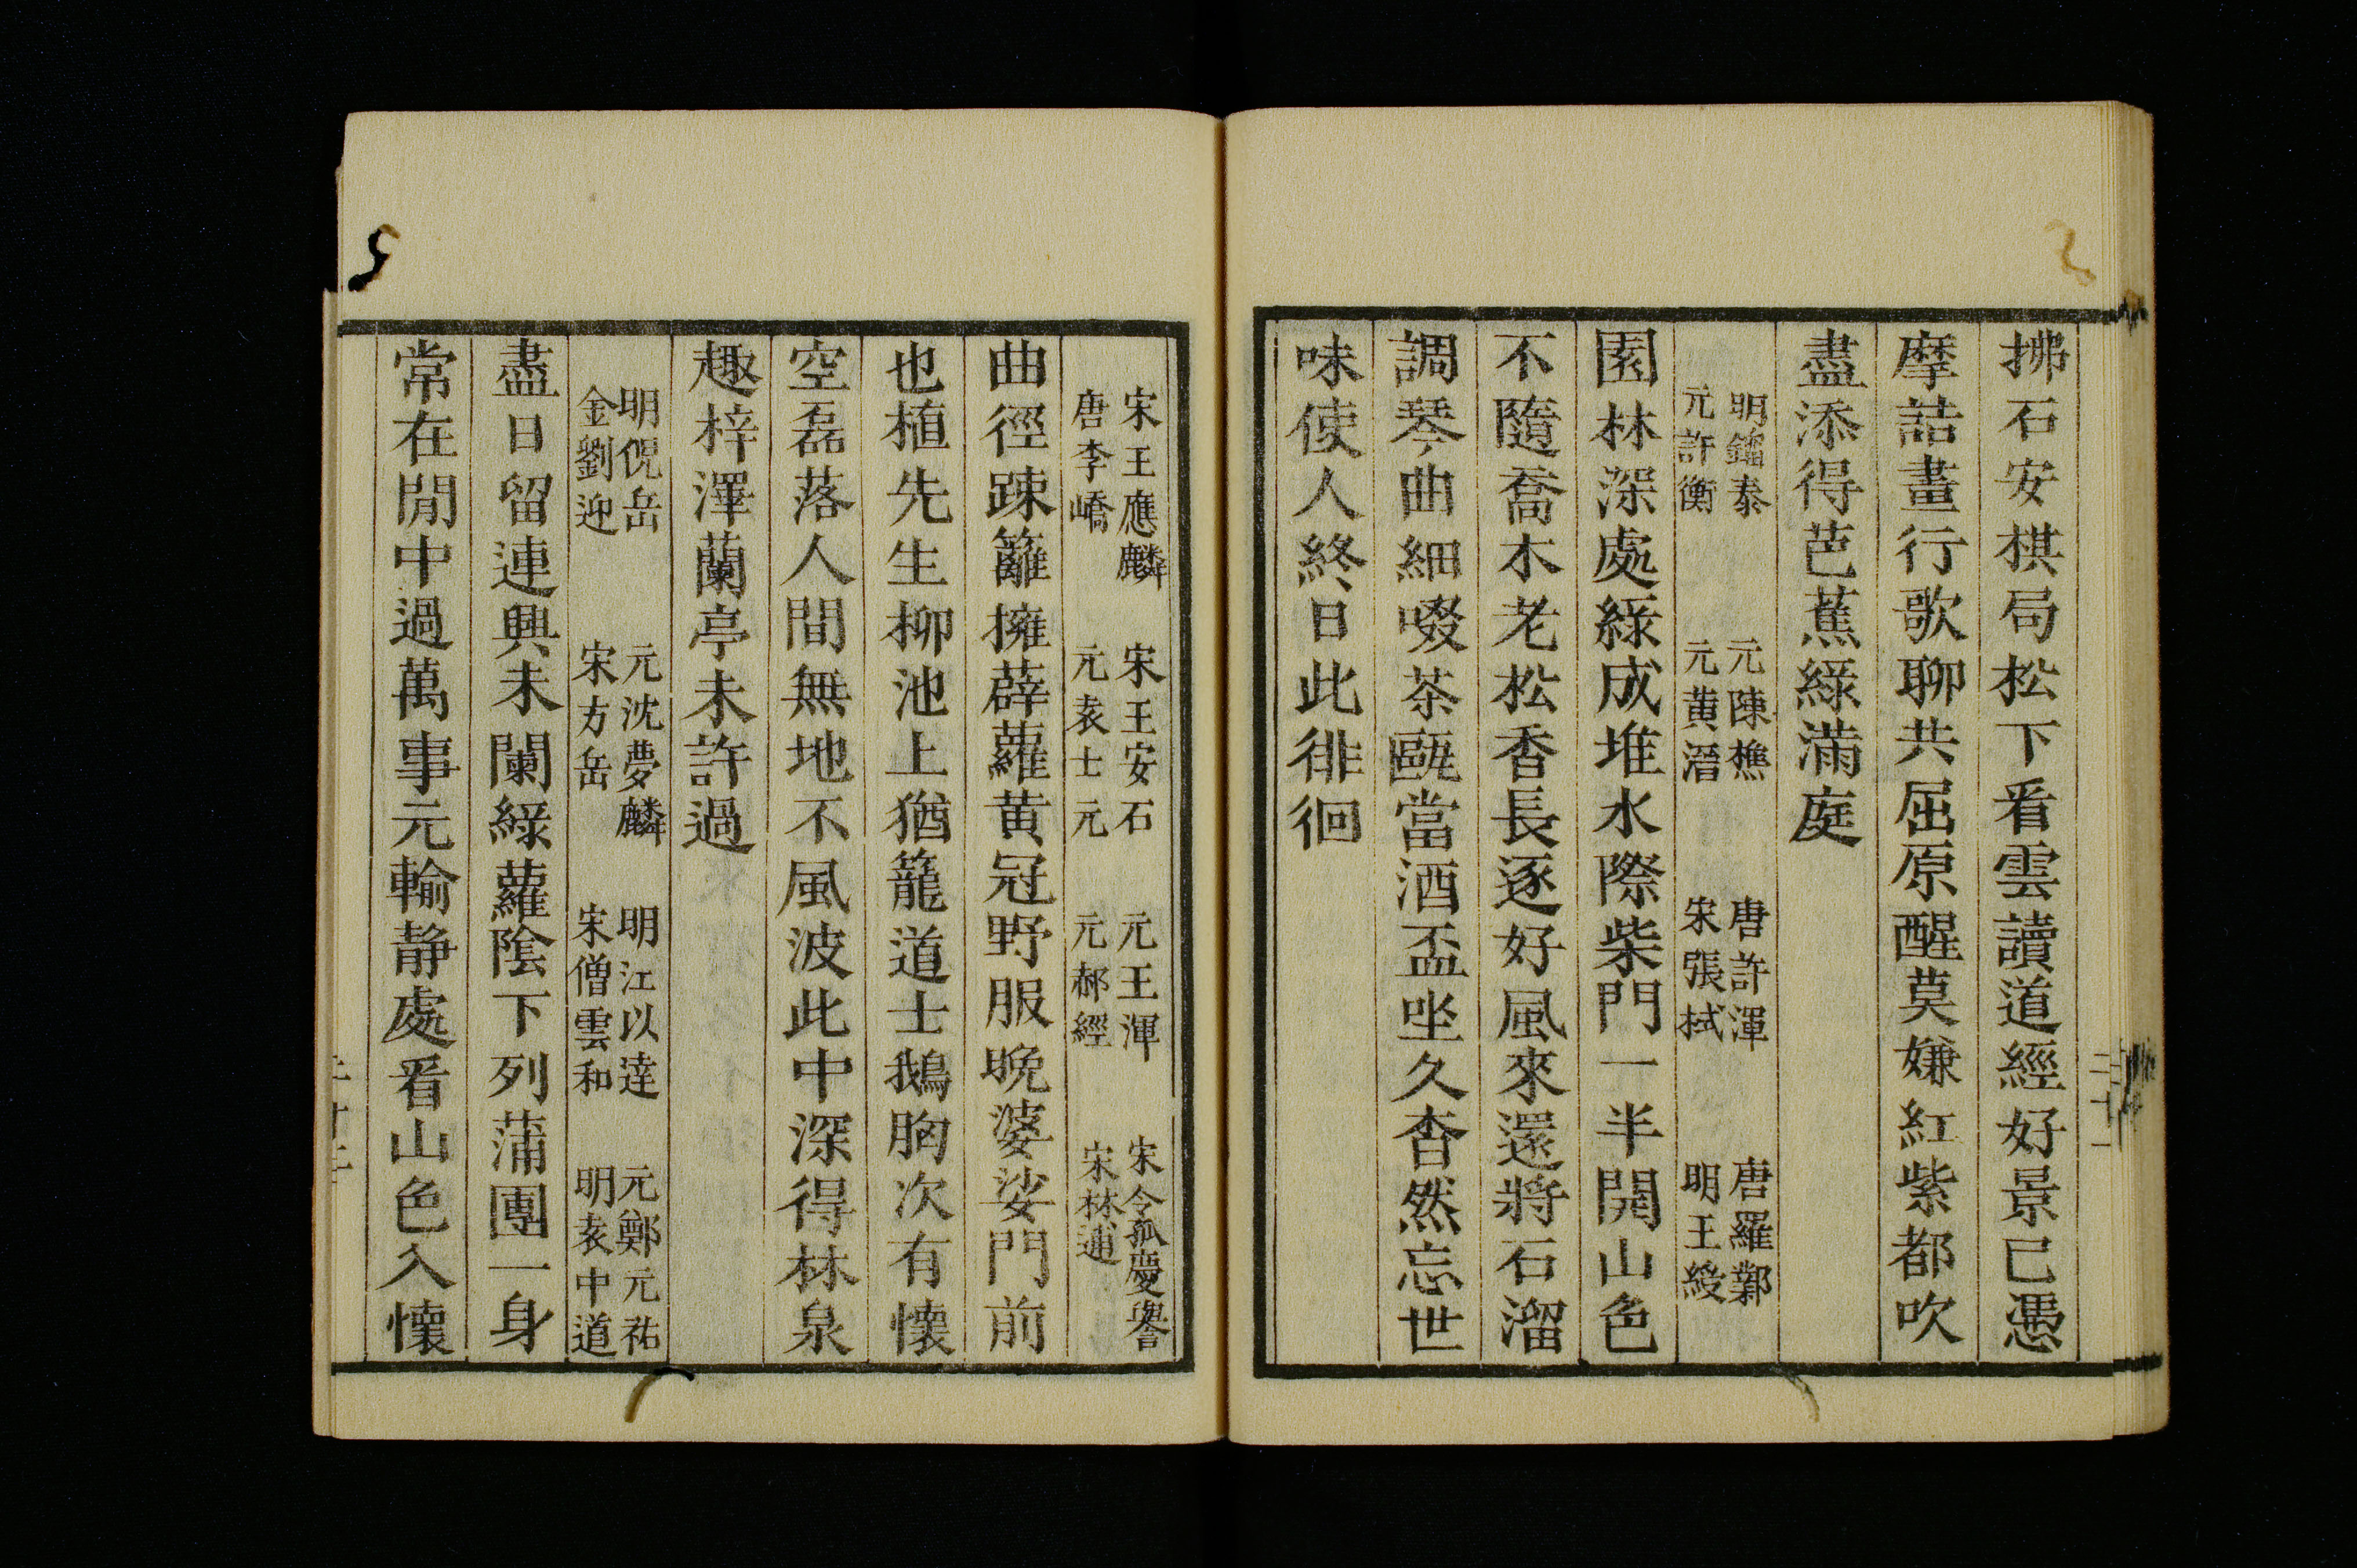 拂石安棋局松下看雲讀道經好景已憑
摩詰畫行歌聊共屈原醒莫嫌紅紫都吹
盡添得芭蕉綠滿庭
明鎦泰　元陳樵　唐許渾　唐羅鄴
元許衡　元黄溍　宋張栻　明王綬
園林深處綠成堆水際柴門一半開山色
不隨喬木老松香長逐好風來還將石溜
調琴曲細啜茶甌當酒盃坐久杳然忘世
味使人終日此徘徊
宋王應麟　宋王安石　元王渾　宋令孤慶譽
唐李嶠　元袁士元　元郝經　宋林逋
曲徑踈籬擁薜蘿黄冠野服晩婆娑門前
也植先生柳池上猶籠道士鵝胸次有懷
空磊落人間無地不風波此中深得林泉
趣梓澤蘭亭未許過
明倪岳　元沈夢麟　明江以達　元鄭元祐
金劉迎　宋方岳　宋僧雲和　明袁中道
盡日留連興未闌綠蘿陰下列蒲團一身
常在閒中過萬事元輸静處看山色入懷
二十一